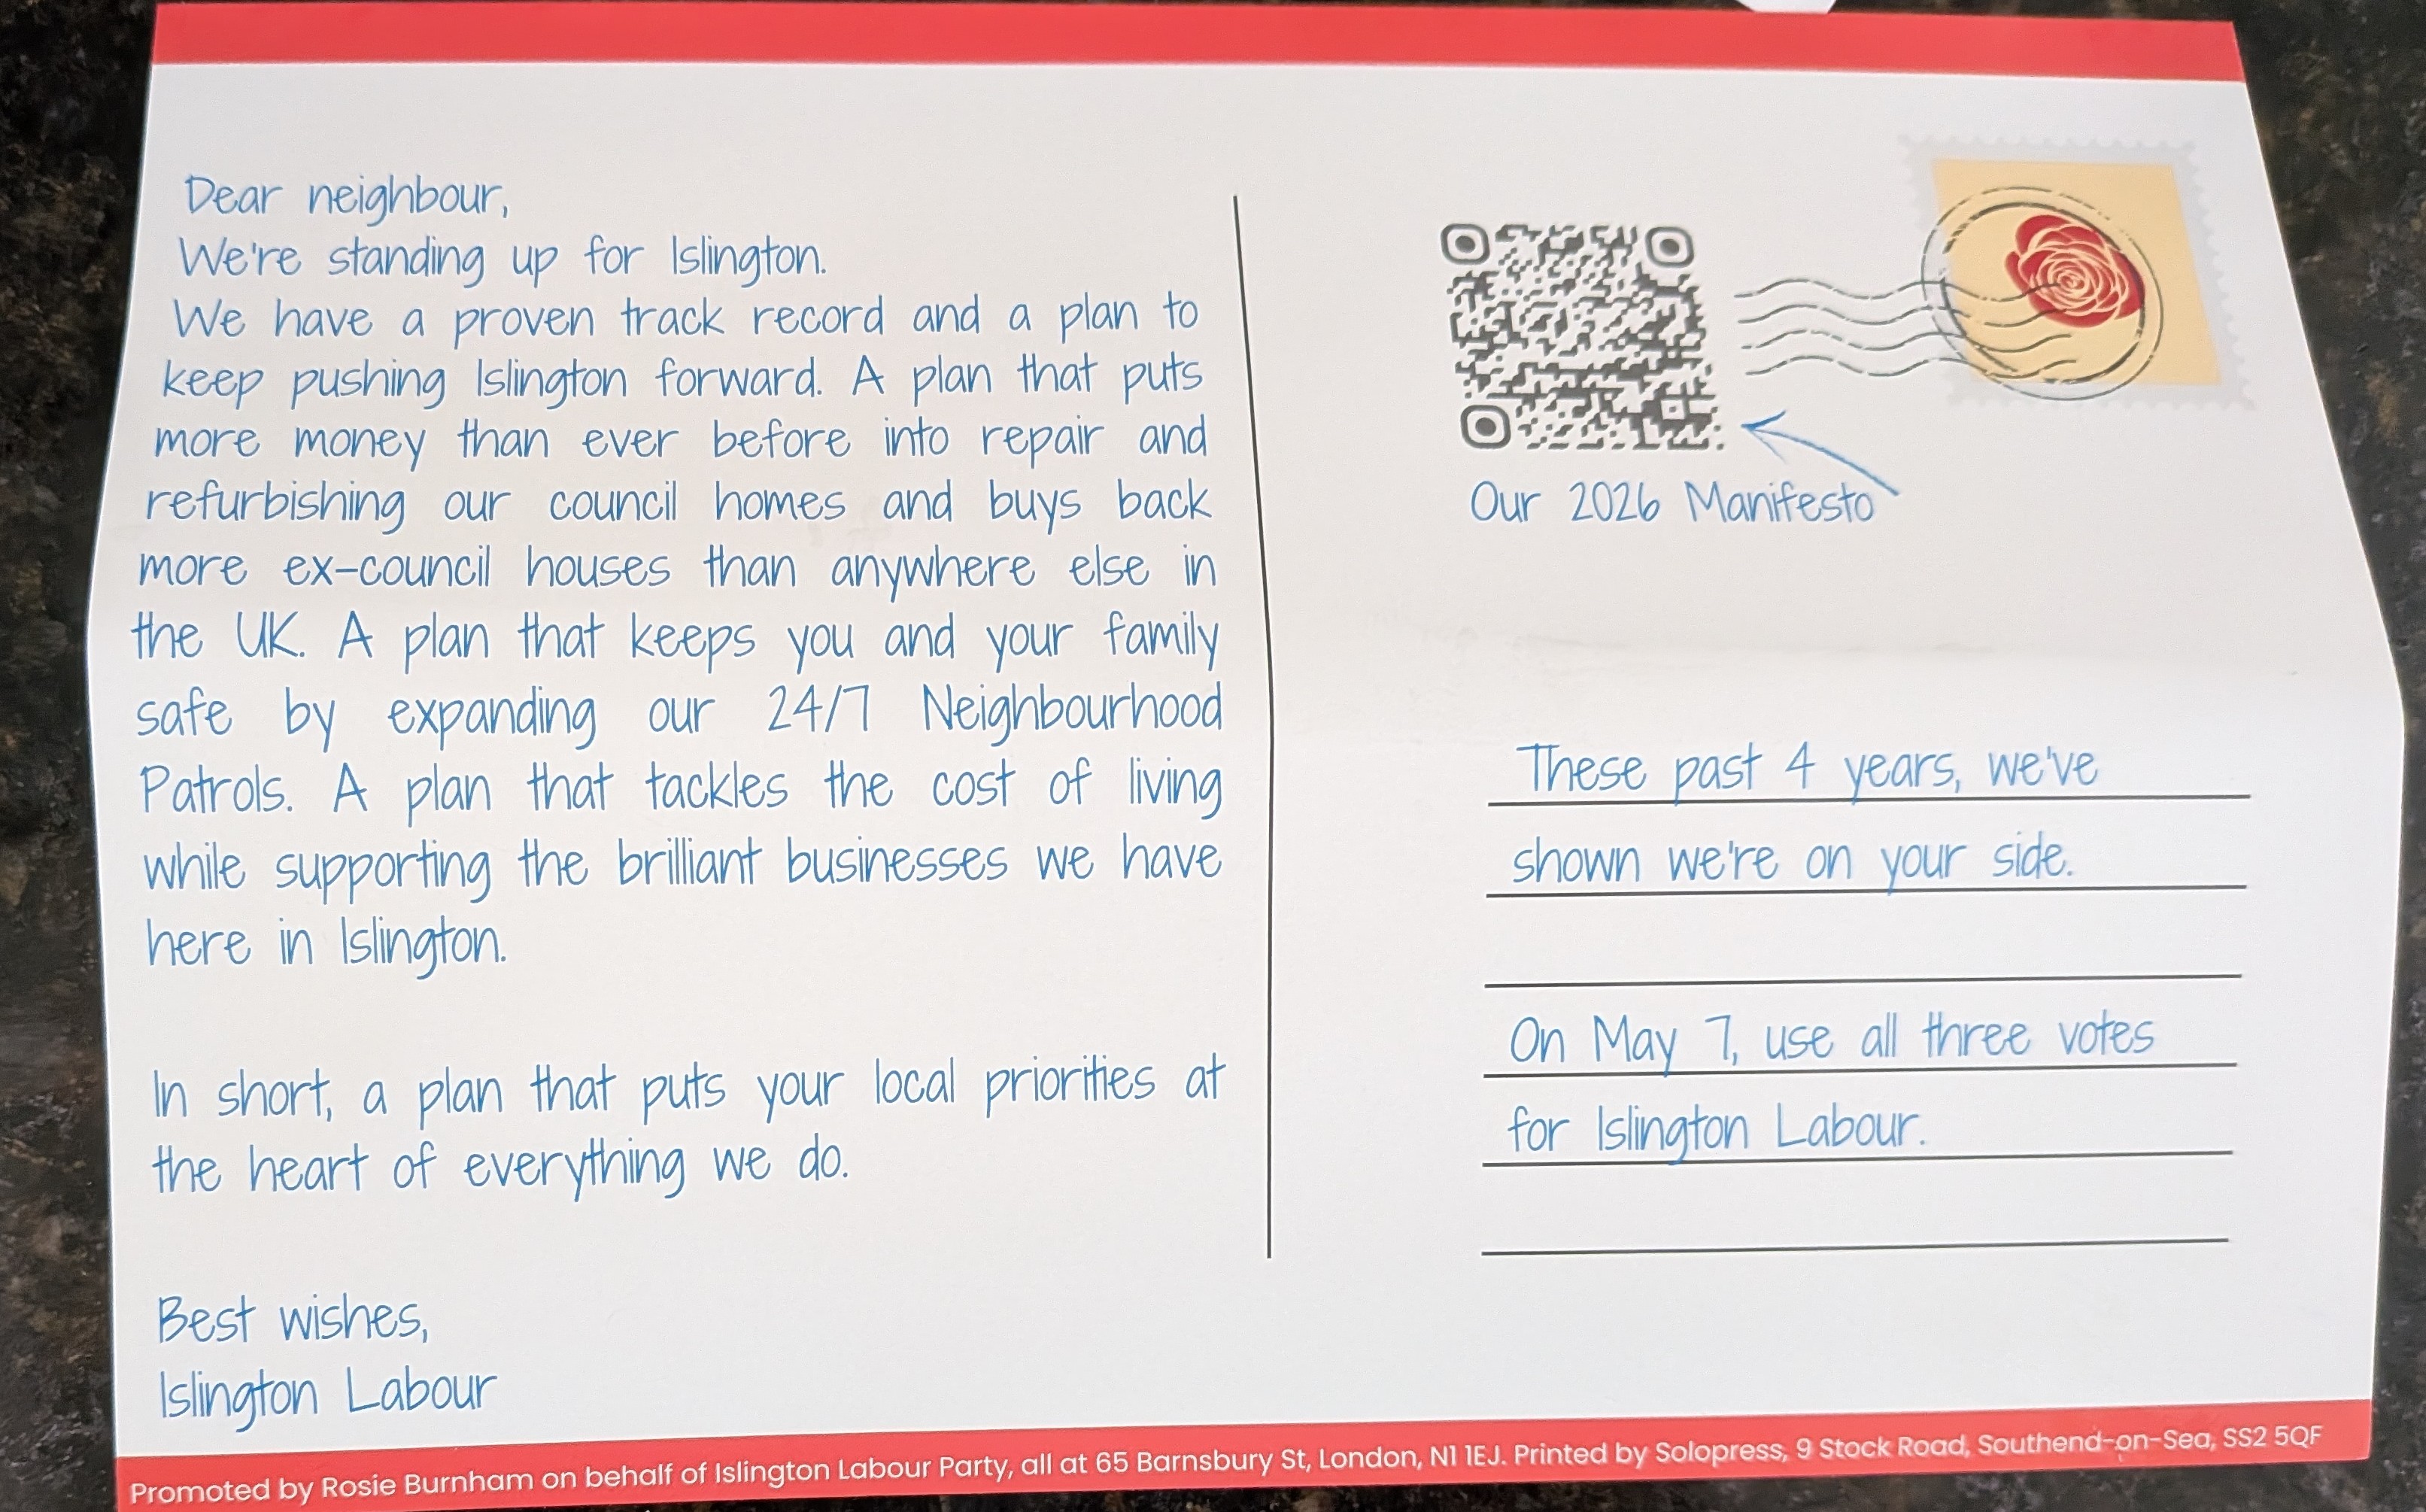 Dear neighbour,
We're standing up for Islington.
We have a proven track record and a plan to
keep pushing Islington forward. A plan that puts
more money than ever before into repair and
refurbishing our council homes and buys back
more ex-council houses than anywhere else in
the UK. A plan that keeps you and your family
safe by expanding our 24/7 Neighbourhood
Patrols. A plan that tackles the cost of living
while supporting the brilliant businesses we have
here in Islington.
In short, a plan that puts your local priorities at
the heart of everything we do.
Best wishes,
Islington Labour
Our 2026 Manifesto
These past 4 years, we've
shown we're on your side.
On May 7, use all three votes
for Islington Labour.
Promoted by Rosie Burnham on behalf of Islington Labour Party, all at 65 Barnsbury St, London, N1 1EJ. Printed by Solopress, 9 Stock Road, Southend-on-Sea, SS2 5QF